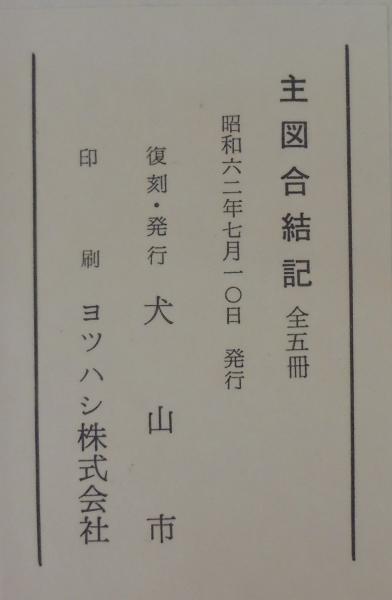 主図合結記 全五冊
昭和六二年七月一〇日 発行
復刻・発行 犬山市
印刷 ヨツハシ株式会社